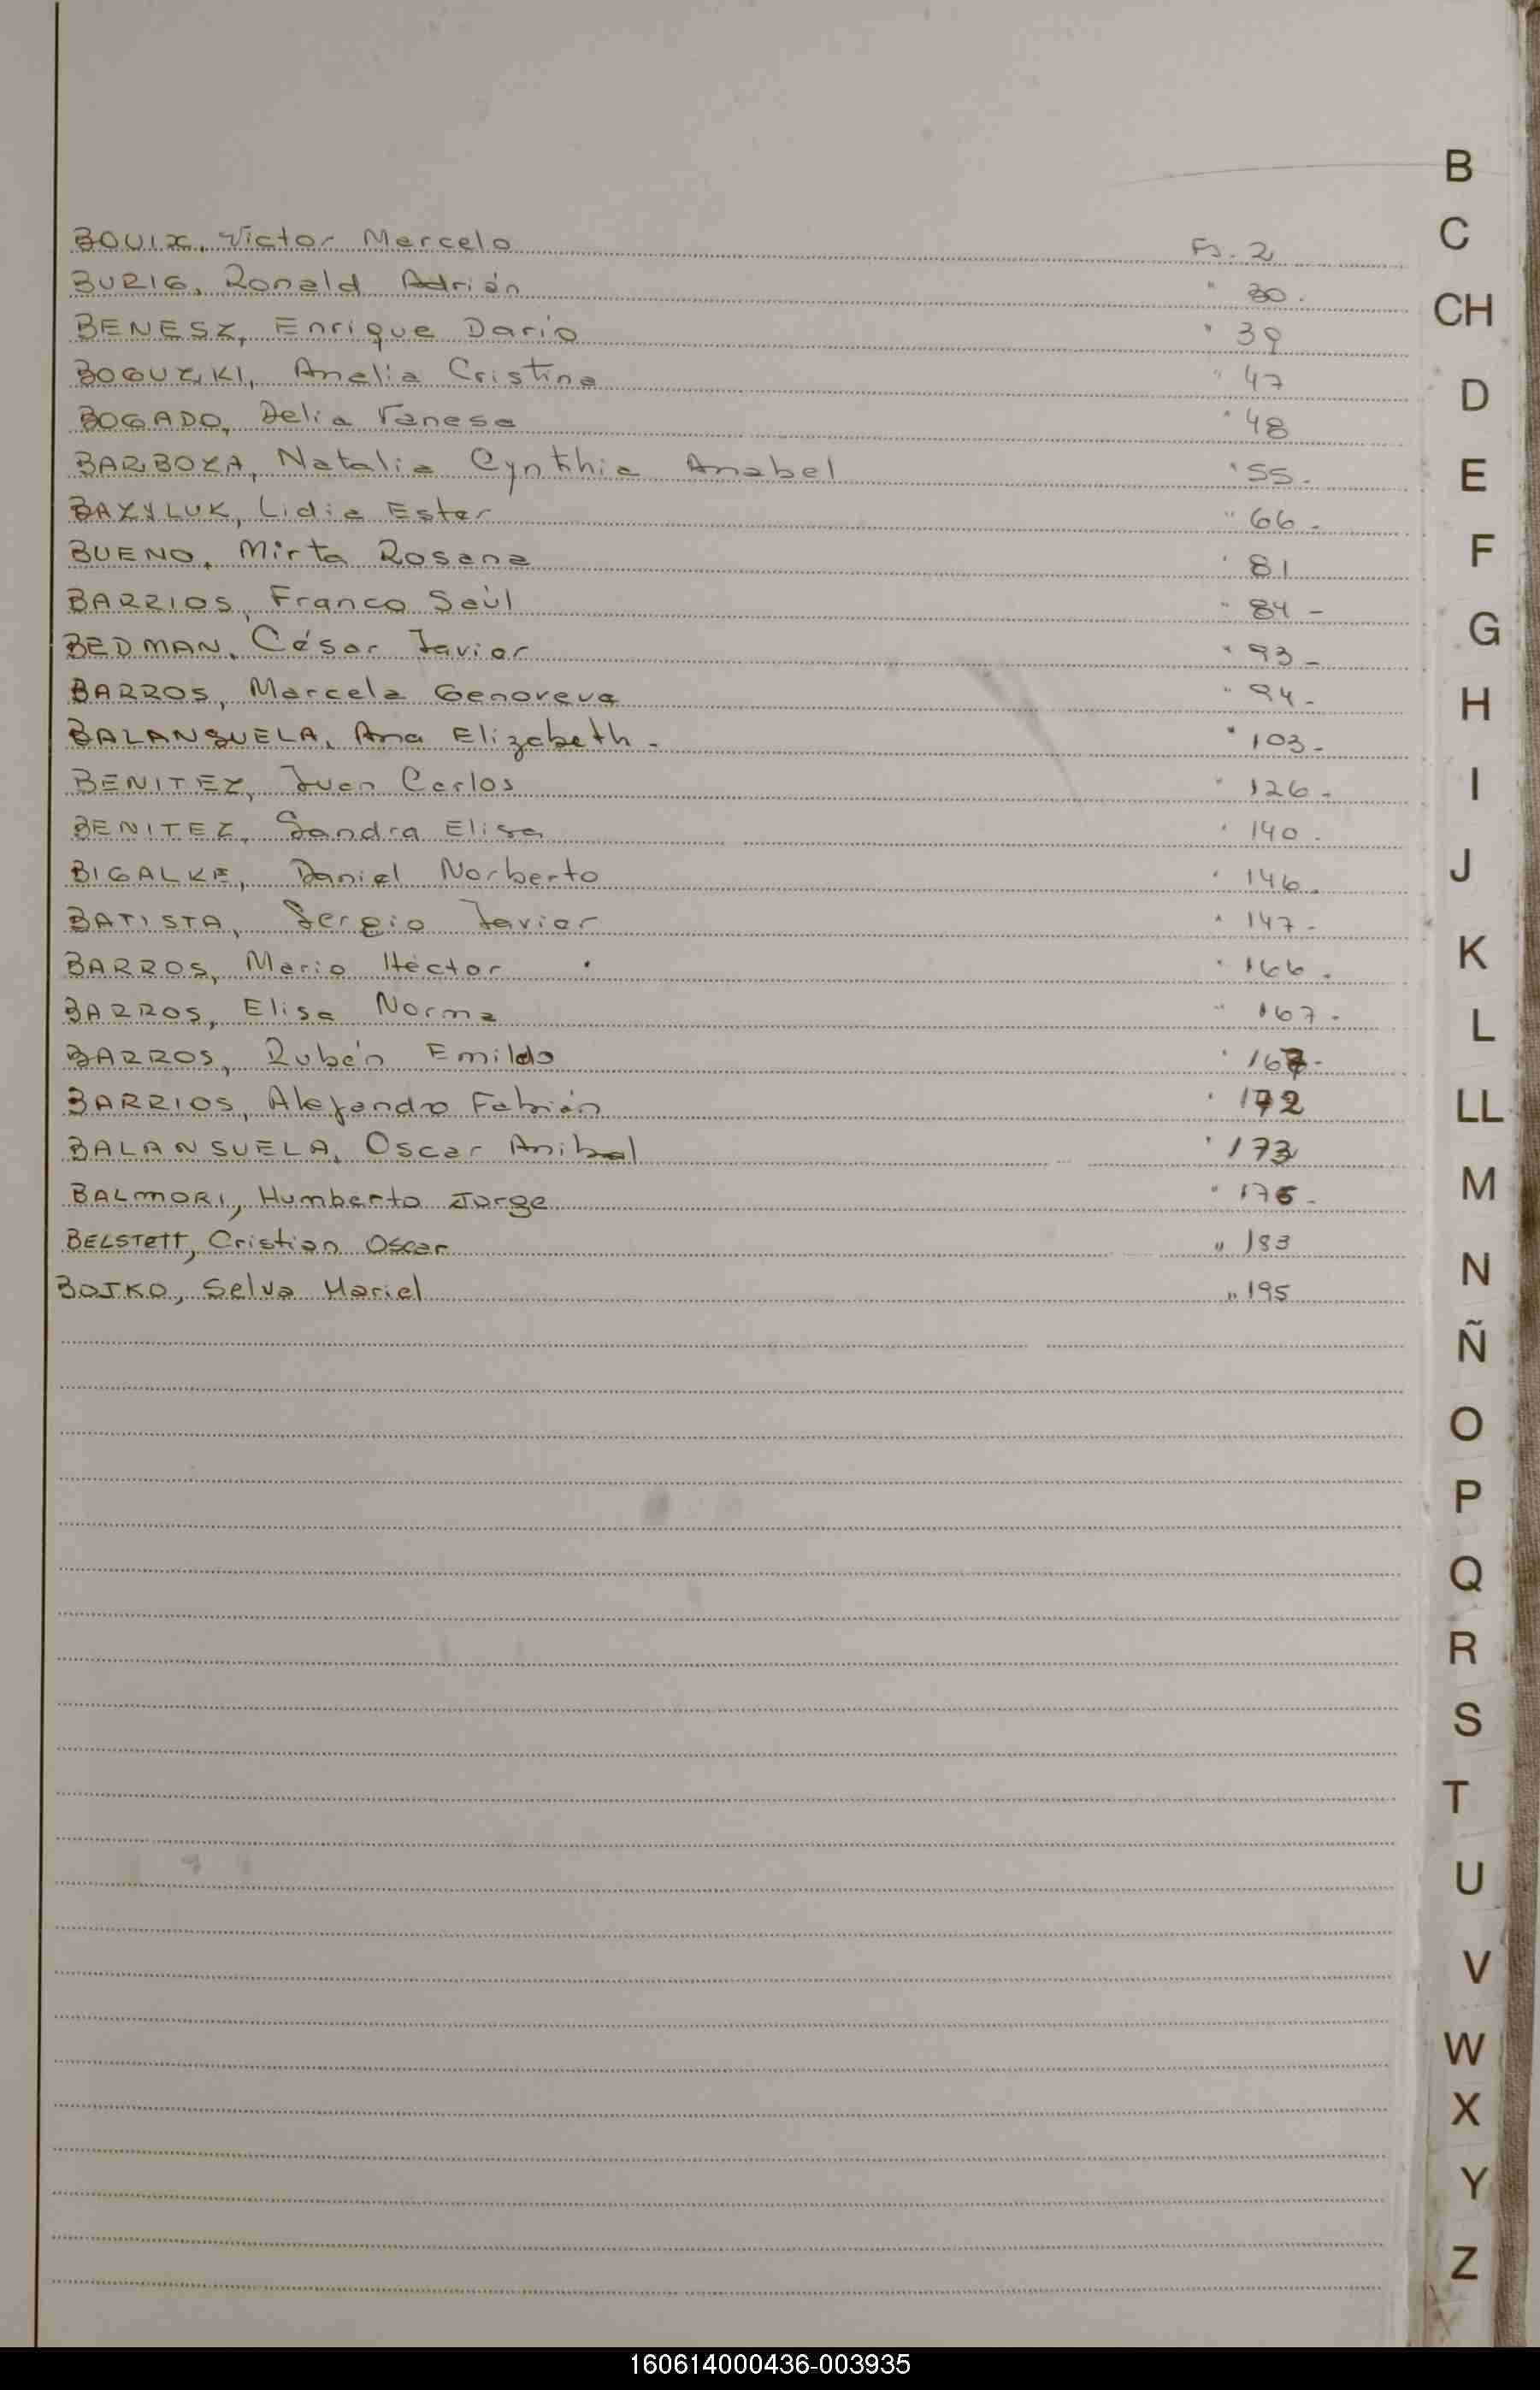 B
C
BOUIX, Victor Marcelo Fs. 2
BURIG, Ronald Adrián " 30.
CH
BENESZ, Enrique Dario " 39
BOGUZKI, Analia Cristina " 47
D
BOGADO, Delia Vanesa " 48
BARBOZA, Natalia Cynthia Anabel " 55-
E
BAZYLUK, Lidia Ester " 66-
BUENO, Mirta Rosana " 81
F
BARRIOS, Franco Saúl " 84-
BEDMAN, César Javier " 93-
G
BARROS, Marcela Genoveva " 94-
H
BALANSUELA, Ana Elizabeth - " 103-
BENITEZ, Juan Carlos " 126-
I
BENITEZ, Sandra Elisa " 140-
BIGALKE, Daniel Norberto " 146-
J
BATISTA, Sergio Javier " 147-
BARROS, Mario Héctor " 166-
K
BARROS, Elisa Norma " 167-
L
BARROS, Rubén Emildo " 167-
BARRIOS, Alejandro Fabián " 172
LL
BALANSUELA, Oscar Anibal " 173
BALMORI, Humberto Jorge " 176-
M
BELSTETT, Cristian Oscar " 183
BOJKO, Selva Mariel " 195
N
Ñ
O
P
Q
R
S
T
U
V
W
X
Y
Z
160614000436-003935